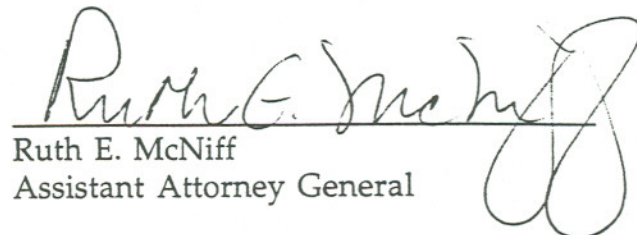 Ruth E. McNiff
Ruth E. McNiff
Assistant Attorney General